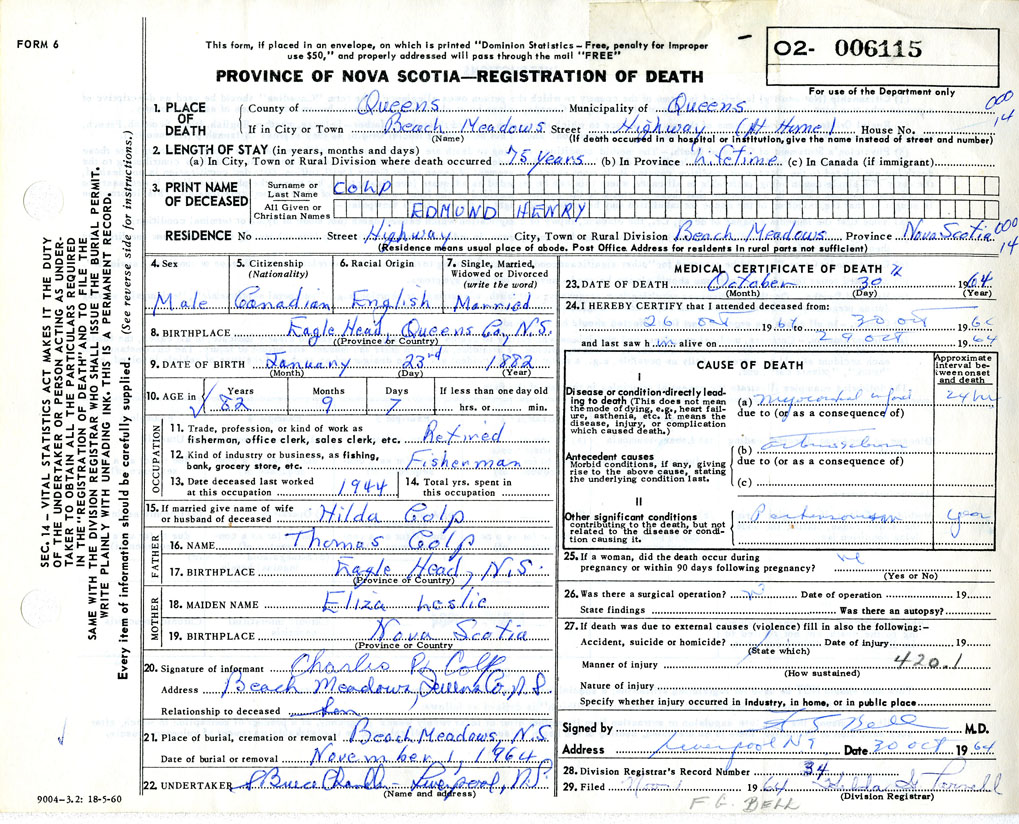 FORM 6
This form, if placed in an envelope, on which is printed "Dominion Statistics – Free, penalty for improper
use $50," and properly addressed will pass through the mail "FREE"
PROVINCE OF NOVA SCOTIA—REGISTRATION OF DEATH
02- 006115
For use of the Department only
000
14
1. PLACE OF DEATH
County of Queens Municipality of Queens
If in City or Town Beach Meadows Street Highway (At Home) House No.
(Name) (If death occurred in a hospital or institution, give the name instead of street and number)
2. LENGTH OF STAY (in years, months and days)
(a) In City, Town or Rural Division where death occurred 75 years (b) In Province Lifetime (c) In Canada (if immigrant)
3. PRINT NAME OF DECEASED
Surname or Last Name COLP
All Given or Christian Names EDMUND HENRY
RESIDENCE No Street Highway City, Town or Rural Division Beach Meadows Province Nova Scotia
(Residence means usual place of abode. Post Office Address for residents in rural part not sufficient)
000
14
4. Sex
Male
5. Citizenship
(Nationality)
Canadian
6. Racial Origin
English
7. Single, Married, Widowed or Divorced
(write the word)
Married
8. BIRTHPLACE Eagle Head, Queens Co, N.S.
(Province or Country)
9. DATE OF BIRTH January 23rd 1882
(Month) (Day) (Year)
10. AGE in Years Months Days If less than one day old
82 9 7 hrs. or min.
OCCUPATION
11. Trade, profession, or kind of work as
fisherman, office clerk, sales clerk, etc. Retired
12. Kind of industry or business, as fishing,
bank, grocery store, etc. Fisherman
13. Date deceased last worked
at this occupation 1944
14. Total yrs. spent in
this occupation
15. If married give name of wife
or husband of deceased Hilda Colp
FATHER
16. NAME Thomas Colp
17. BIRTHPLACE Eagle Head, N.S.
(Province of Country)
MOTHER
18. MAIDEN NAME Eliza Leslie
19. BIRTHPLACE Nova Scotia
(Province or Country)
20. Signature of informant Charlis Colp
Address Beach Meadows, Queens Co, N.S
Relationship to deceased Son
21. Place of burial, cremation or removal Beach Meadows, N.S
Date of burial or removal November 1, 1964
22. UNDERTAKER Liverpool, N.S.
(Name and address)
9004—3.2: 18-5-60
SEC. 14 – VITAL STATISTICS ACT MAKES IT THE DUTY
OF THE UNDERTAKER OR PERSON ACTING AS UNDER-
TAKER TO OBTAIN ALL THE PARTICULARS REQUIRED
IN THE "REGISTRATION OF DEATH" AND TO FILE THE
SAME WITH THE DIVISION REGISTRAR WHO SHALL ISSUE THE BURIAL PERMIT.
WRITE PLAINLY WITH UNFADING INK. THIS IS A PERMANENT RECORD.
Every item of information should be carefully supplied. (See reverse side for instructions.)
MEDICAL CERTIFICATE OF DEATH
23. DATE OF DEATH October 30 1964
(Month) (Day) (Year)
24. I HEREBY CERTIFY that I attended deceased from:
26 oct 1964 to 30 oct 1964
and last saw him alive on 29 oct 1964
CAUSE OF DEATH
Approximate interval between onset and death
I
Disease or condition directly lead-
ing to death (This does not mean
the mode of dying, e.g., heart fail-
ure, asthenia, etc. It means the
disease, injury, or complication
which caused death.)
(a) myocardial infarct 24 hr
due to (or as a consequence of)
Antecedent causes
Morbid conditions, if any, giving
rise to the above cause, stating
the underlying condition last.
(b)
due to (or as a consequence of)
(c)
II
Other significant conditions
contributing to the death, but not
related to the disease or condi-
tion causing it.
Parkinsonism year
25. If a woman, did the death occur during
pregnancy or within 90 days following pregnancy?
(Yes or No)
26. Was there a surgical operation? no Date of operation 19
State findings Was there an autopsy?
27. If death was due to external causes (violence) fill in also the following:–
Accident, suicide or homicide? Date of injury 19
(State which)
Manner of injury 420.1
(How sustained)
Nature of injury
Specify whether injury occurred in industry, in home, or in public place
Signed by Bell M.D.
Address Liverpool NS Date 30 oct 1964
28. Division Registrar's Record Number 34
29. Filed Nov 1 1964
(Division Registrar)
F. G. BELL